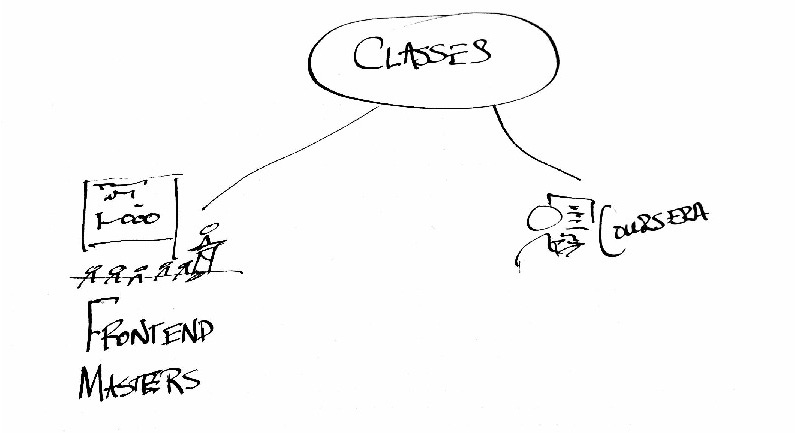 CLASSES
FRONTEND
MASTERS
COURSERA